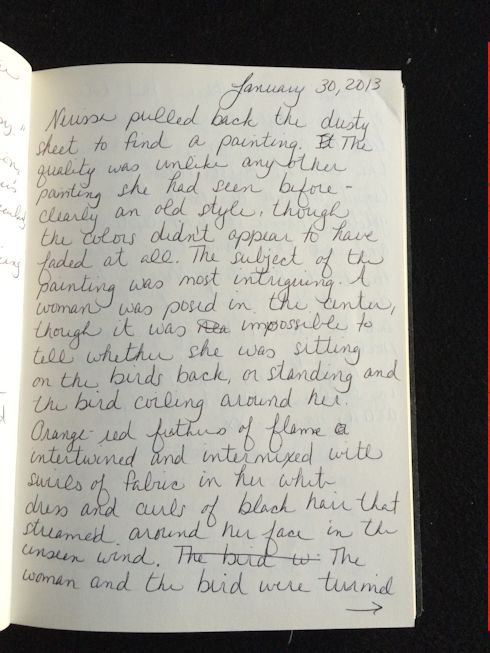 January 30, 2013
Nerissa pulled back the dusty
sheet to find a painting. It The
quality was unlike any other
painting she had seen before -
clearly an old style, though
the colors didn't appear to have
faded at all. The subject of the
painting was most intriguing. A
woman was posed in the center,
though it was impossible to
tell whether she was sitting
on the birds back, or standing and
the bird coiling around her.
Orange-red feathers of flame a
intertwined and intermixed with
swirls of fabric in her white
dress and curls of black hair that
streamed around her face in the
unseen wind. The bird w The
woman and the bird were turned
→